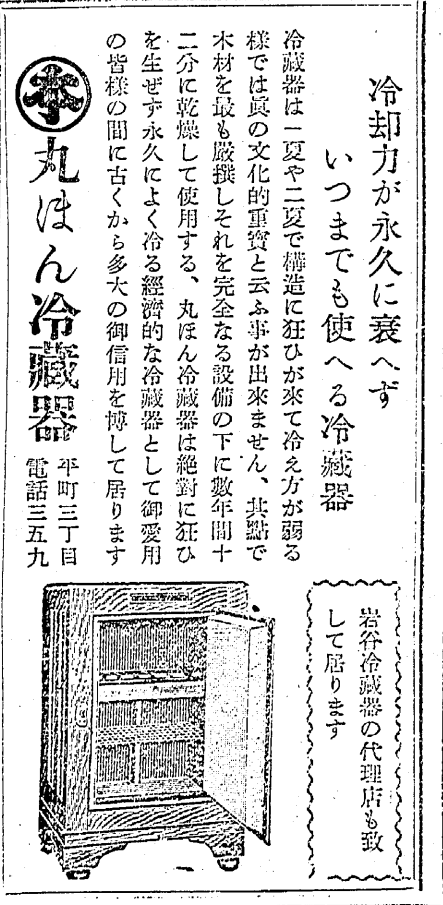 冷却力が永久に衰へず
いつまでも使へる冷藏器
冷藏器は一夏や二夏で構造に狂ひが來て冷え方が弱る
樣では眞の文化的重寶と云ふ事が出來ません、其點で
木材を最も嚴撰しそれを完全なる設備の下に數年間十
二分に乾燥して使用する、丸ほん冷藏器は絶對に狂ひ
を生ぜず永久によく冷る經濟的な冷藏器として御愛用
の皆樣の間に古くから多大の御信用を博して居ります
本
丸ほん冷藏器
平町三丁目
電話三五九
岩谷冷藏器の代理店も致
して居ります